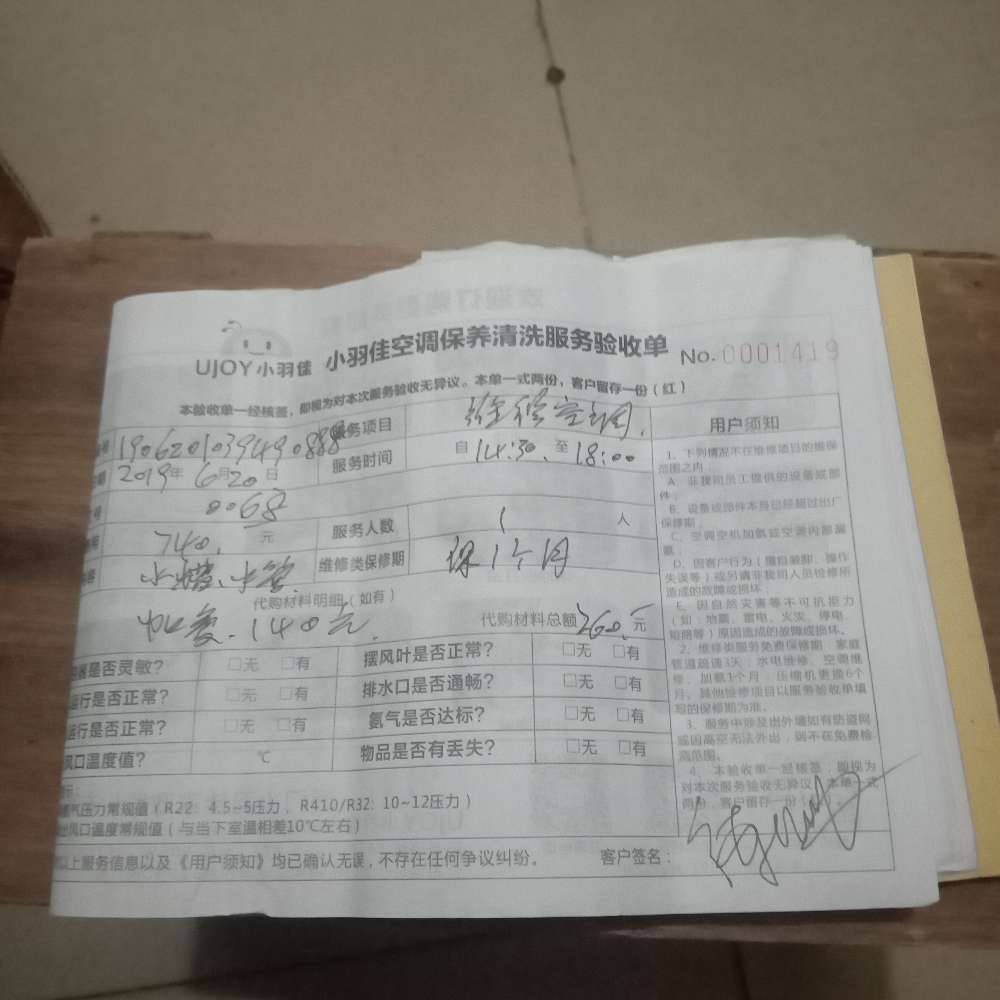 UJOY小羽佳 小羽佳空调保养清洗服务验收单 No.0001419
本验收单一经核签，即视为对本次服务验收无异议。本单一式两份，客户留存一份（红）
号 190620103949088 服务项目 维修空调
期 2019年6月20日 服务时间 自14:30至18:00
号 0068
740. 元 服务人数 1 人
容 水槽、水管 维修类保修期 保1个月
代购材料明细（如有）
140元. 代购材料总额 260.元
器是否灵敏？ □无 □有 摆风叶是否正常？ □无 □有
运行是否正常？ □无 □有 排水口是否通畅？ □无 □有
运行是否正常？ □无 □有 氨气是否达标？ □无 □有
风口温度值？ ℃ 物品是否有丢失？ □无 □有
气压力常规值（R22：4.5~5压力、R410/R32：10~12压力）
出风口温度常规值（与当下室温相差10℃左右）
以上服务信息以及《用户须知》均已确认无误，不存在任何争议纠纷。 客户签名：
用户须知
1、下列情况不在维修项目的维保
范围之内
A、非我司员工提供的设备或部
件；
B、设备或部件本身已经超过出厂
保修期；
C、空调空机加氨或空调内部漏
氨；
D、因客户行为（擅自装卸、操作
失误等）或另请非我司人员检修所
造成的故障或损坏；
E、因自然灾害等不可抗拒力
（如：地震、雷电、火灾、停电、
短路等）原因造成的故障或损坏。
2、维修类服务免费保修期：家庭
管道疏通3天；水电维修、空调维
修、加氨1个月；压缩机更换6个
月，其他维修项目以服务验收单填
写的保修期为准。
3、服务中涉及出外墙如有防盗网
或因高空无法外出，则不在免费检
测范围。
4、本验收单一经核签，即视为
对本次服务验收无异议，本单一式
两份，客户留存一份